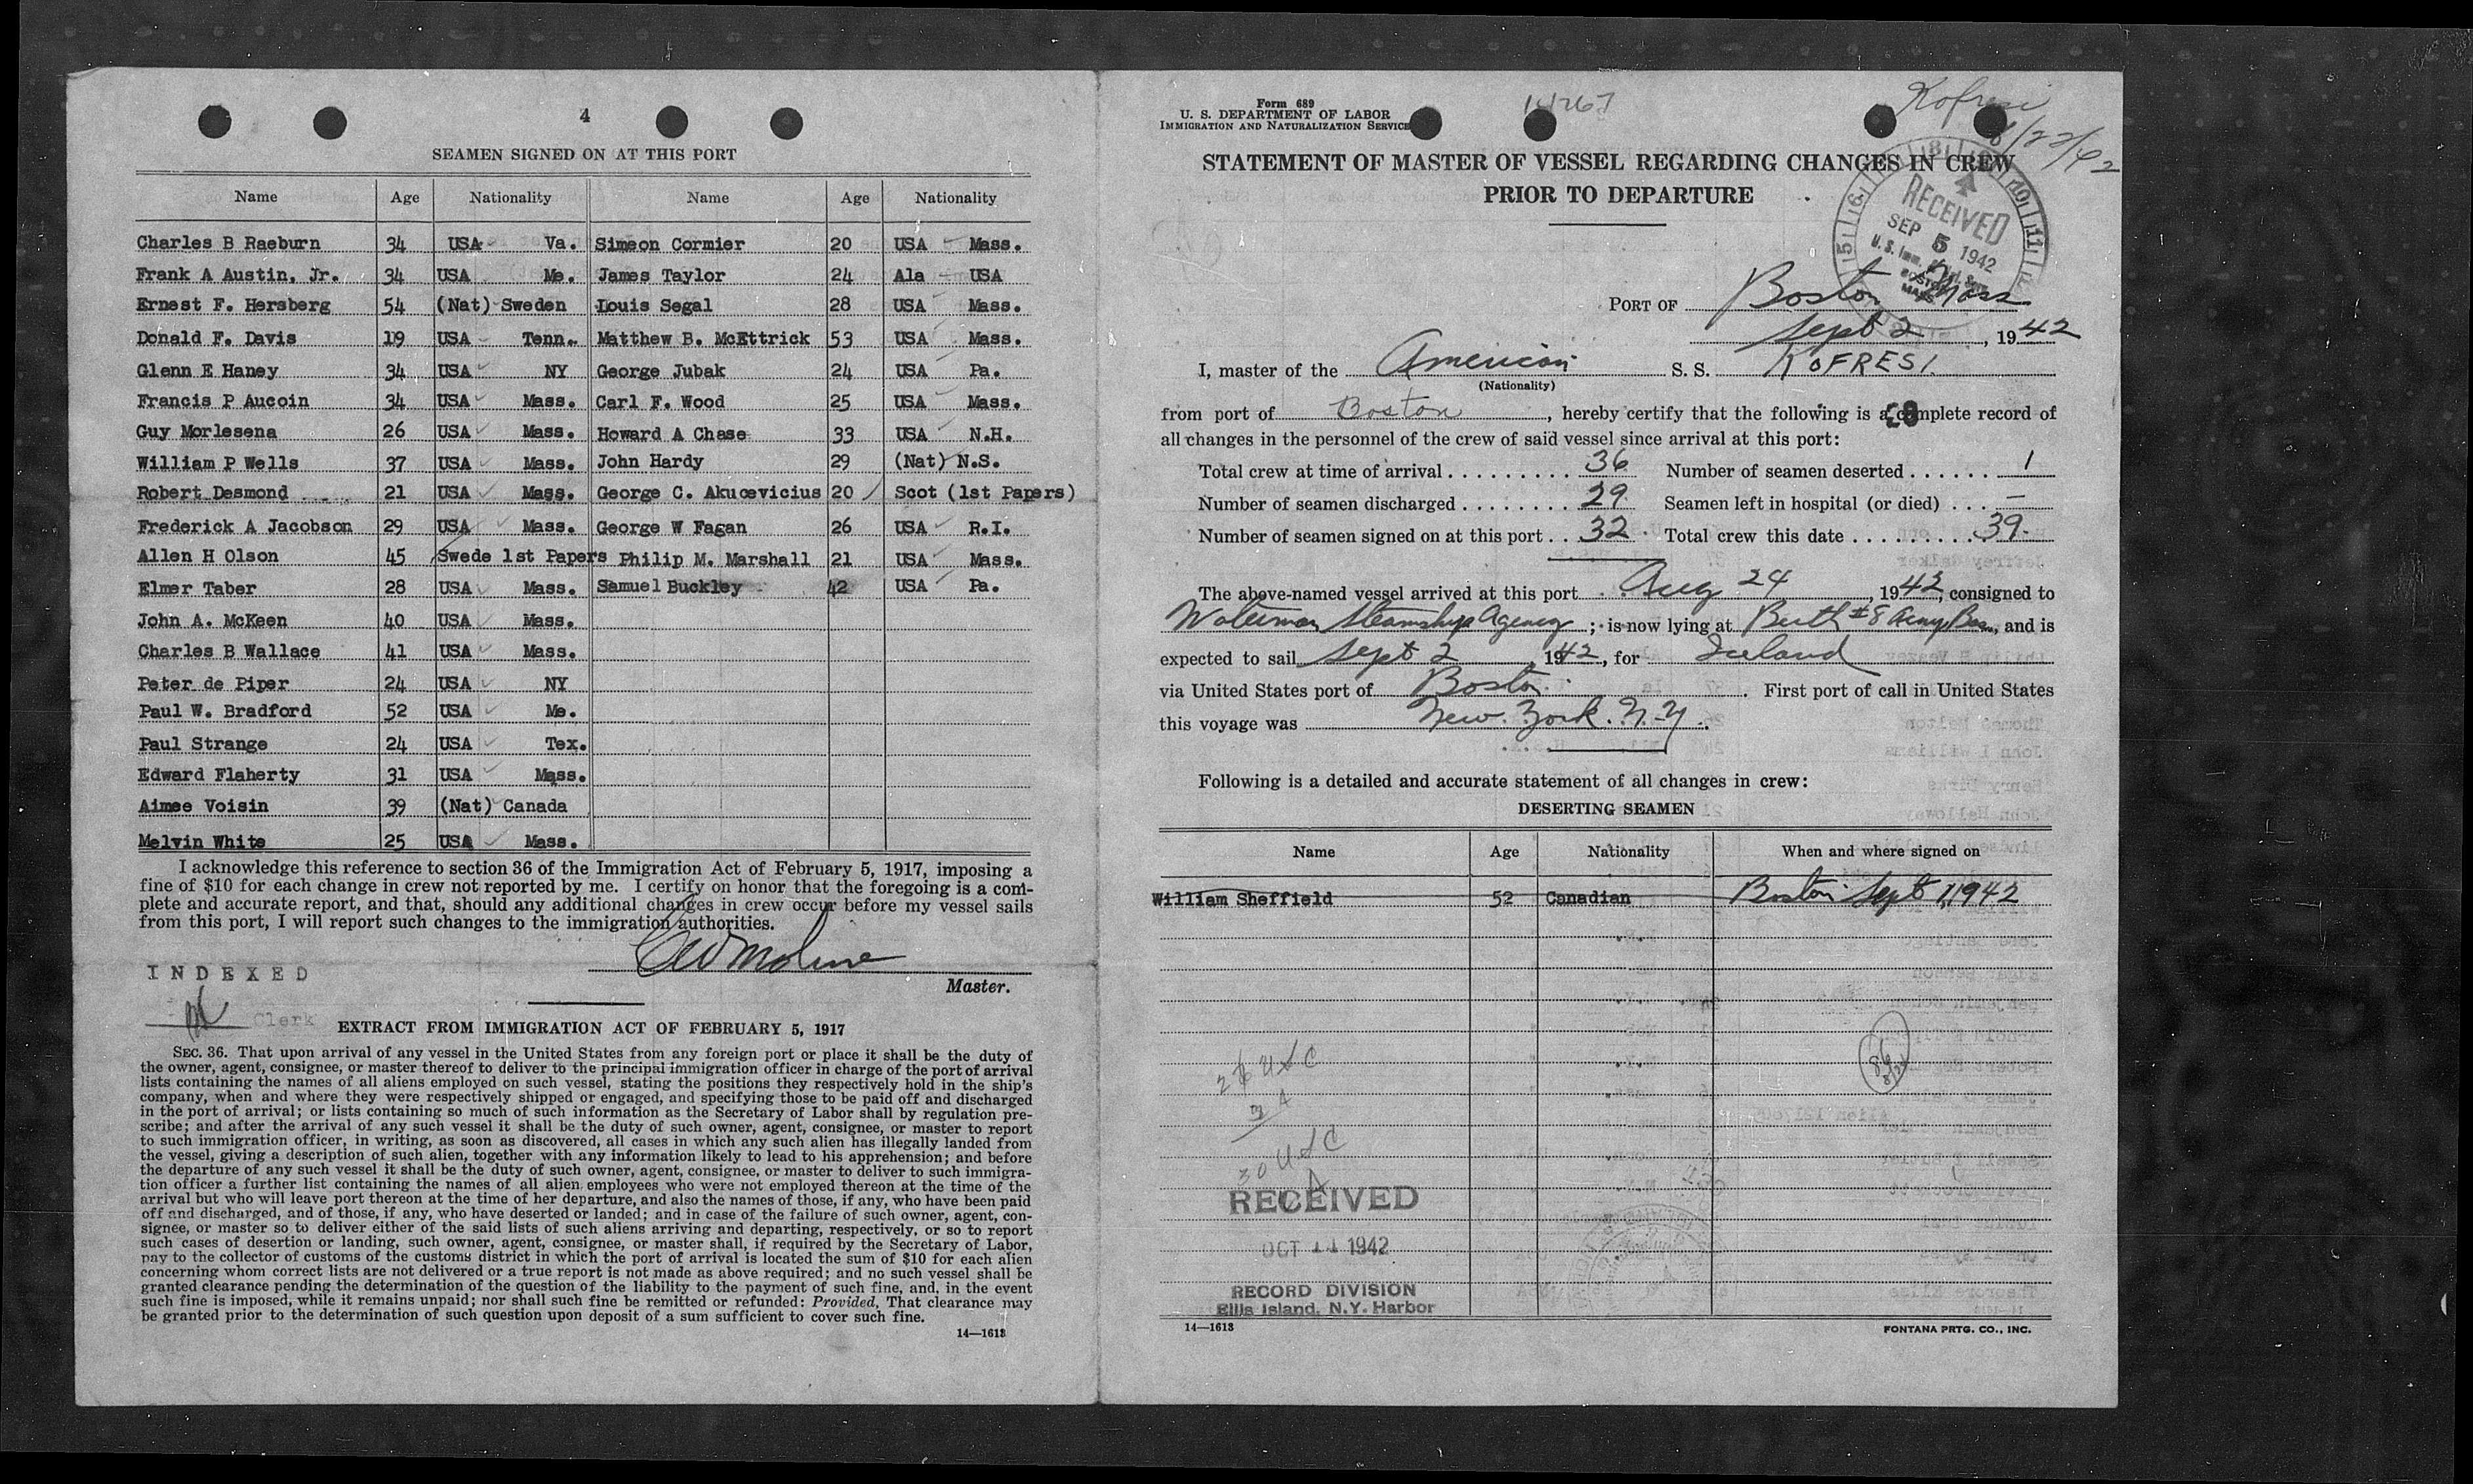 4
SEAMEN SIGNED ON AT THIS PORT
Name Age Nationality Name Age Nationality
Charles B Raeburn 34 USA Va. Simeon Cormier 20 USA Mass.
Frank A Austin, Jr. 34 USA Me. James Taylor 24 Ala USA
Ernest F. Hersberg 54 (Nat) Sweden Louis Segal 28 USA Mass.
Donald F. Davis 19 USA Tenn. Matthew B. McEttrick 53 USA Mass.
Glenn E Haney 34 USA NY George Jubak 24 USA Pa.
Francis P Aucoin 34 USA Mass. Carl F. Wood 25 USA Mass.
Guy Morlesena 26 USA Mass. Howard A Chase 33 USA N.H.
William P Wells 37 USA Mass. John Hardy 29 (Nat) N.S.
Robert Desmond 21 USA Mass. George C. Akucevicius 20 Scot (1st Papers)
Frederick A Jacobson 29 USA Mass. George W Fagan 26 USA R.I.
Allen H Olson 45 Swede 1st Papers Philip M. Marshall 21 USA Mass.
Elmer Taber 28 USA Mass. Samuel Buckley 42 USA Pa.
John A. McKeen 40 USA Mass.
Charles B Wallace 41 USA Mass.
Peter de Piper 24 USA NY
Paul W. Bradford 52 USA Me.
Paul Strange 24 USA Tex.
Edward Flaherty 31 USA Mass.
Aimee Voisin 39 (Nat) Canada
Melvin White 25 USA Mass.
I acknowledge this reference to section 36 of the Immigration Act of February 5, 1917, imposing a
fine of $10 for each change in crew not reported by me. I certify on honor that the foregoing is a com-
plete and accurate report, and that, should any additional changes in crew occur before my vessel sails
from this port, I will report such changes to the immigration authorities.
INDEXED
Master.
Clerk
EXTRACT FROM IMMIGRATION ACT OF FEBRUARY 5, 1917
SEC. 36. That upon arrival of any vessel in the United States from any foreign port or place it shall be the duty of
the owner, agent, consignee, or master thereof to deliver to the principal immigration officer in charge of the port of arrival
lists containing the names of all aliens employed on such vessel, stating the positions they respectively hold in the ship's
company, when and where they were respectively shipped or engaged, and specifying those to be paid off and discharged
in the port of arrival; or lists containing so much of such information as the Secretary of Labor shall by regulation pre-
scribe; and after the arrival of any such vessel it shall be the duty of such owner, agent, consignee, or master to report
to such immigration officer, in writing, as soon as discovered, all cases in which any such alien has illegally landed from
the vessel, giving a description of such alien, together with any information likely to lead to his apprehension; and before
the departure of any such vessel it shall be the duty of such owner, agent, consignee, or master to deliver to such immigra-
tion officer a further list containing the names of all alien employees who were not employed thereon at the time of the
arrival but who will leave port thereon at the time of her departure, and also the names of those, if any, who have been paid
off and discharged, and of those, if any, who have deserted or landed; and in case of the failure of such owner, agent, con-
signee, or master so to deliver either of the said lists of such aliens arriving and departing, respectively, or so to report
such cases of desertion or landing, such owner, agent, consignee, or master shall, if required by the Secretary of Labor,
pay to the collector of customs of the customs district in which the port of arrival is located the sum of $10 for each alien
concerning whom correct lists are not delivered or a true report is not made as above required; and no such vessel shall be
granted clearance pending the determination of the question of the liability to the payment of such fine, and, in the event
such fine is imposed, while it remains unpaid; nor shall such fine be remitted or refunded: Provided, That clearance may
be granted prior to the determination of such question upon deposit of a sum sufficient to cover such fine.
14—1613
Form 689
U. S. DEPARTMENT OF LABOR
IMMIGRATION AND NATURALIZATION SERVICE
14267
Kofresi
8/22/42
STATEMENT OF MASTER OF VESSEL REGARDING CHANGES IN CREW
PRIOR TO DEPARTURE
RECEIVED
SEP 5 1942
PORT OF Boston Mass
Sept 2, 1942
I, master of the American S. S. KOFRESI
(Nationality)
from port of Boston, hereby certify that the following is a complete record of
all changes in the personnel of the crew of said vessel since arrival at this port:
Total crew at time of arrival 36 Number of seamen deserted 1
Number of seamen discharged 29 Seamen left in hospital (or died) —
Number of seamen signed on at this port 32 Total crew this date 39
The above-named vessel arrived at this port Aug 24, 1942, consigned to
Waterman Steamship Agency; is now lying at Berth #8 Army Base, and is
expected to sail Sept 2 1942, for Iceland
via United States port of Boston. First port of call in United States
this voyage was New York. N.Y.
Following is a detailed and accurate statement of all changes in crew:
DESERTING SEAMEN
Name Age Nationality When and where signed on
William Sheffield 52 Canadian Boston Sept 1, 1942
30 USC
RECEIVED
OCT 11 1942
RECORD DIVISION
Ellis Island, N.Y. Harbor
14—1613
FONTANA PRTG. CO., INC.